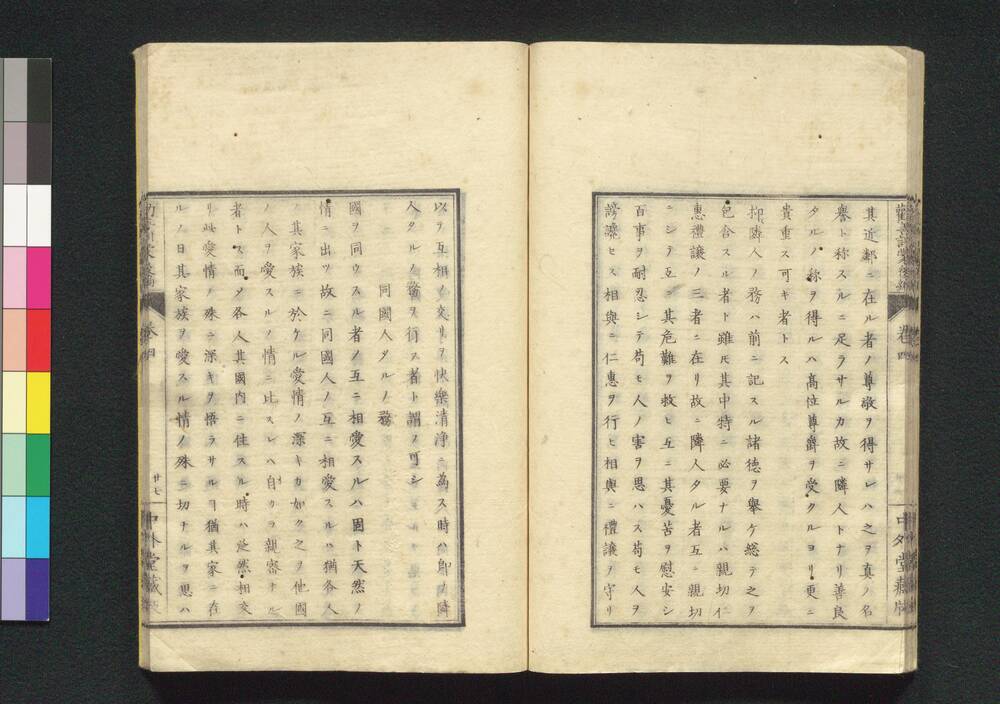 其近鄰ニ在ル者ノ尊敬ヲ得サレハ之ヲ真ノ名
譽ト称スルニ足ラサルカ故ニ隣人トナリ善良
タルノ称ヲ得ルハ高位尊爵ヲ受クルヨリ更ニ
貴重ス可キ者トス
抑隣人ノ務ハ前ニ記スル諸徳ヲ舉ケ総テ之ヲ
包含スル者ト雖モ其中特ニ必要ナルハ親切仁
惠禮譲ノ三者ニ在リ故ニ隣人タル者互ニ親切
ニシテ互ニ其危難ヲ救ヒ互ニ其憂苦ヲ慰安シ
百事ヲ耐忍シテ苟モ人ノ害ヲ思ハス苟モ人ヲ
謗譏セス相與ニ仁惠ヲ行ヒ相與ニ禮譲ヲ守リ
卷四
中外堂藏版
以テ互相ノ交リヲ快樂清浄ニ為ス時ハ即チ隣
人タルノ務ヲ行ス者ト謂フ可シ
同國人タルノ務
國ヲ同ウスル者ノ互ニ相愛スルハ固ト天然ノ
情ニ出ツ故ニ同國人ノ互ニ相愛スルハ猶各人
ノ其家族ニ於ケル愛情ノ深キカ如ク之ヲ他國
ノ人ヲ愛スルノ情ニ比スレハ自カラ親密ナル
者トス而シテ各人其國内ニ住スル時ハ汎然相交
リ此愛情ノ殊ニ深キヲ悟ラサルヿ猶其家ニ在
ルノ日其家族ヲ愛スル情ノ殊ニ切ナルヲ思ハ
卷四
廿七
中外堂藏